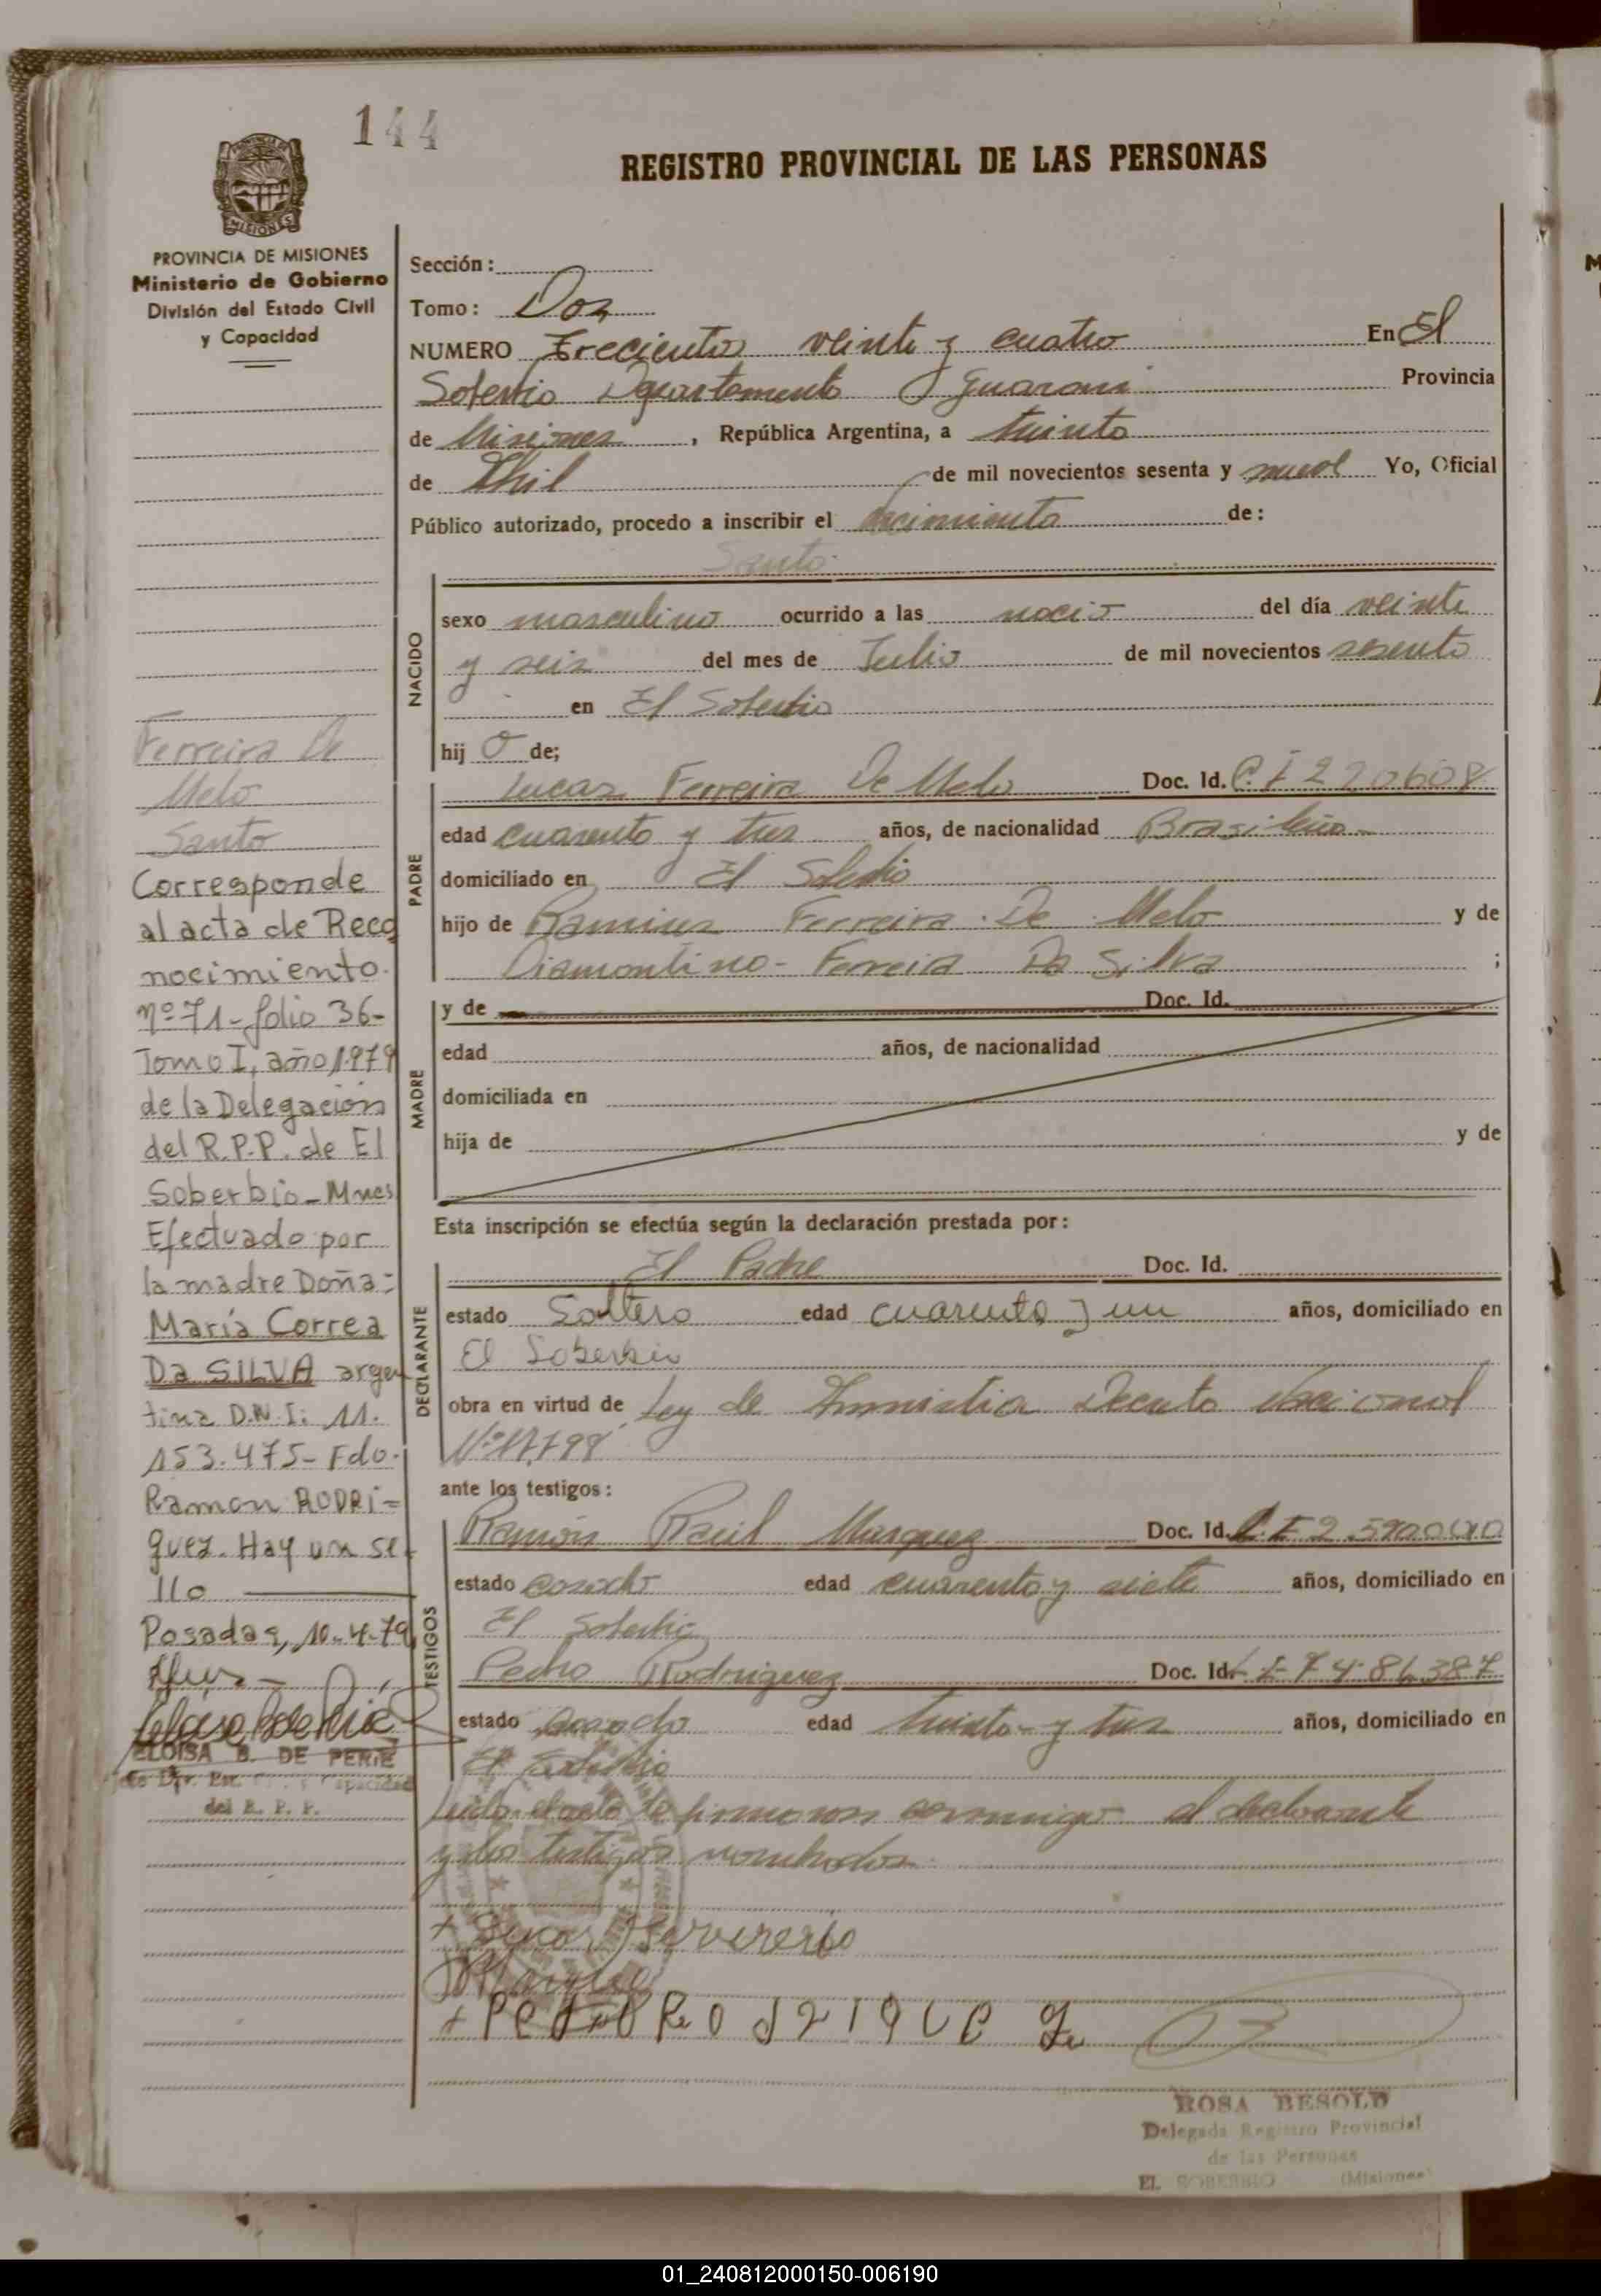 144
REGISTRO PROVINCIAL DE LAS PERSONAS
PROVINCIA DE MISIONES
Ministerio de Gobierno
División del Estado Civil
y Capacidad
Sección:
Tomo: Dos
NUMERO Treciento veinte y cuatro En El
Soberbio Departamento Guarani Provincia
de Misiones, República Argentina, a treinta
de Abril de mil novecientos sesenta y nueve Yo, Oficial
Público autorizado, procedo a inscribir el nacimiento de:
Santo
NACIDO
sexo masculino ocurrido a las nació del día veinte
y seis del mes de Julio de mil novecientos sesenta
en El Soberbio
hij o de;
PADRE
Lucas Ferreira De Melo Doc. Id. C.I 220608
edad cuarenta y tres años, de nacionalidad Brasileña
domiciliado en El Soberbio
hijo de Ramiro Ferreira De Melo y de
Diamontino - Ferreira Da Silva ;
MADRE
y de Doc. Id.
edad años, de nacionalidad
domiciliada en
hija de y de
Esta inscripción se efectúa según la declaración prestada por:
DECLARANTE
El Padre Doc. Id.
estado Soltero edad cuarenta y un años, domiciliado en
El Soberbio
obra en virtud de Ley de Amnistia Decreto Nacional
Nº 17.798
ante los testigos:
TESTIGOS
Ramón Raúl Marquez Doc. Id.
estado casado edad cuarenta y siete años, domiciliado en
El Soberbio
Pedro Rodriguez Doc. Id.
estado casado edad treinta y tres años, domiciliado en
El Soberbio
Leida el acta la firmaron conmigo el declarante
y los testigos nombrados
Ferreira De
Melo
Santo
Corresponde
al acta de Reco
nocimiento.
nº 71 - folio 36-
Tomo I, año 1979
de la Delegación
del R.P.P. de El
Soberbio - Mnes
Efectuado por
la madre Doña:
María Correa
Da SILVA argen
tina D.N.I: 11.
153.475 - Fdo.
Ramon RODRI=
guez. Hay un se
llo
Posadas, 10-4-79
ELOISA B. DE PERIE
del R. P. P.
ROSA BESOLD
Delegada Registro Provincial
de las Personas
EL SOBERBIO (Misiones)
01_240812000150-006190